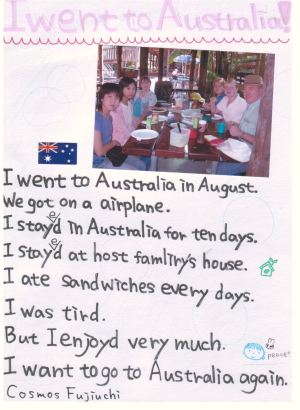 I went to Australia!
I went to Australia in August.
We got on a airplane.
I stayed in Australia for ten days.
I stayed at host famliry's house.
I ate sandwiches every days.
I was tird.
But I enjoyd very much.
peace!
I want to go to Australia again.
Cosmos Fujiuchi